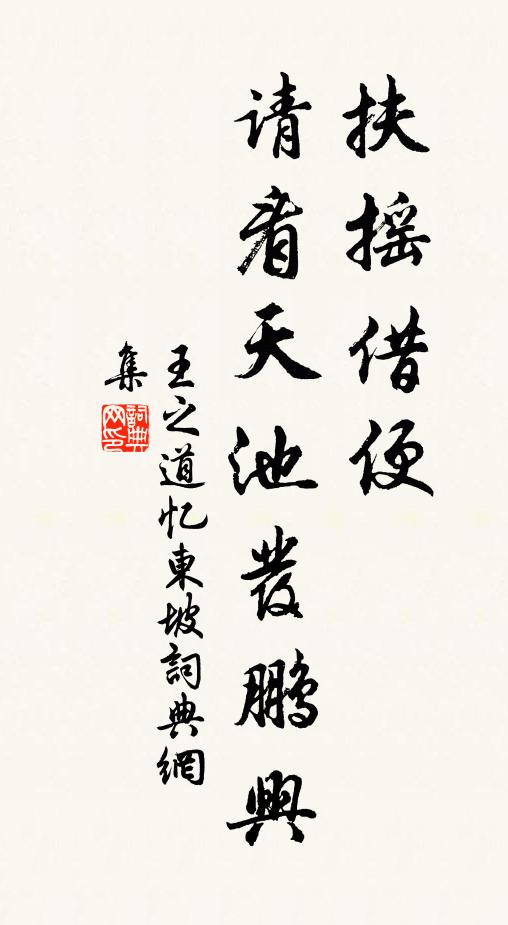 扶摇借便
请看天池發鵬興
王之道忆東坡詞典網
集
詞典网印